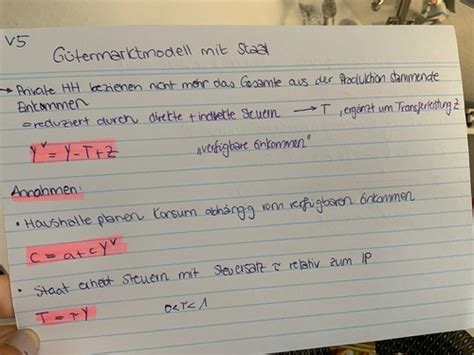 V5
Gütermarktmodell mit Staat
→ Private HH beziehen nicht mehr das Gesamte aus der Produktion stammende
Einkommen
= reduziert durch direkte + indirekte Steuern → T, ergänzt um Transferleistung Z
Yᵛ = Y - T + Z „verfügbare Einkommen"
Annahmen:
• Haushalte planen Konsum abhängig vom verfügbaren Einkommen
C = a + c Yᵛ
• Staat erhebt Steuern mit Steuersatz τ relativ zum IP
T = τ Y 0 < τ < 1